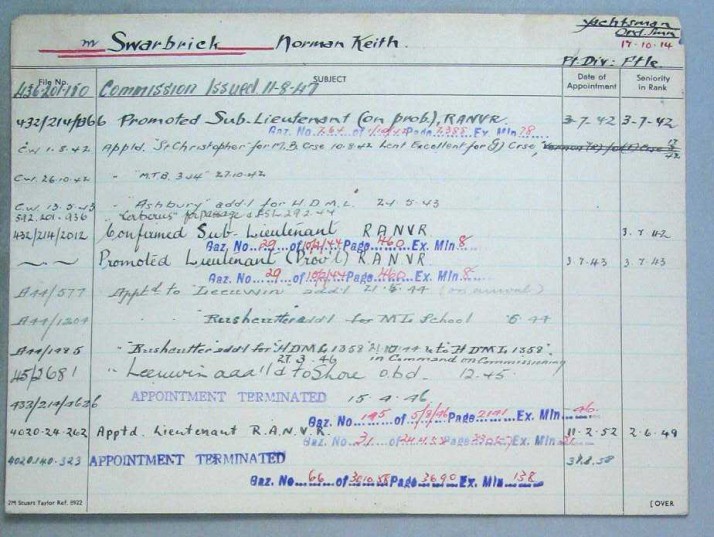 Yachtsman
Ord. Smn
m Swarbrick Norman Keith.
17-10-14
Pt. Div: F'tle
File No. SUBJECT Date of Appointment Seniority in Rank
436-201-110 Commission Issued 11-8-47
432/214/1366 Promoted Sub-Lieutenant (on prob), RANVR. 3-7-42 3-7-42
Gaz. No. of Page 2385 Ex. Min 78
CW 1.5.42 Apptd. "St Christopher" for M.B. Crse 10.8.42 Lent Excellent for (G) Crse,
CW 26.10.42 " "M.T.B. 344" 27.10.42
CW 13.5.43 " "Ashbury" add'l for H.D.M.L. 24.5.43
592.201.936 " "Cerberus" for passage
432/214/2012 Confirmed Sub-Lieutenant R.A.N.V.R. 3.7.42
Gaz. No. 29 of Page 460 Ex. Min 8
Promoted Lieutenant (Prov'l) R.A.N.V.R. 3.7.43 3.7.43
Gaz. No. 29 of Page 460 Ex. Min 8
A44/577 Appt'd to "Leeuwin" add'l 21.5.44 (on arrival)
A44/1204 " "Rushcutter" add'l for ML School 44
A44/1495 " "Rushcutter" add'l for "HDML 1358" & to "HDML 1358".
27.3.46 in Command on Commissioning
45/2681 " Leeuwin add'l to Shore 12.45
APPOINTMENT TERMINATED 15-4-46
432/214/4626 Gaz. No. 195 of 5/9/46 Page 2141 Ex. Min 46
4020-24-262 Apptd. Lieutenant R.A.N.V.R 11-2-52 2-6-49
Gaz. No. 31 of Page Ex. Min
4020.140.323 APPOINTMENT TERMINATED
Gaz. No. 66 of 30.10.58 Page 3690 Ex. Min 138
2M Stuart Taylor Ref. 5922 [OVER